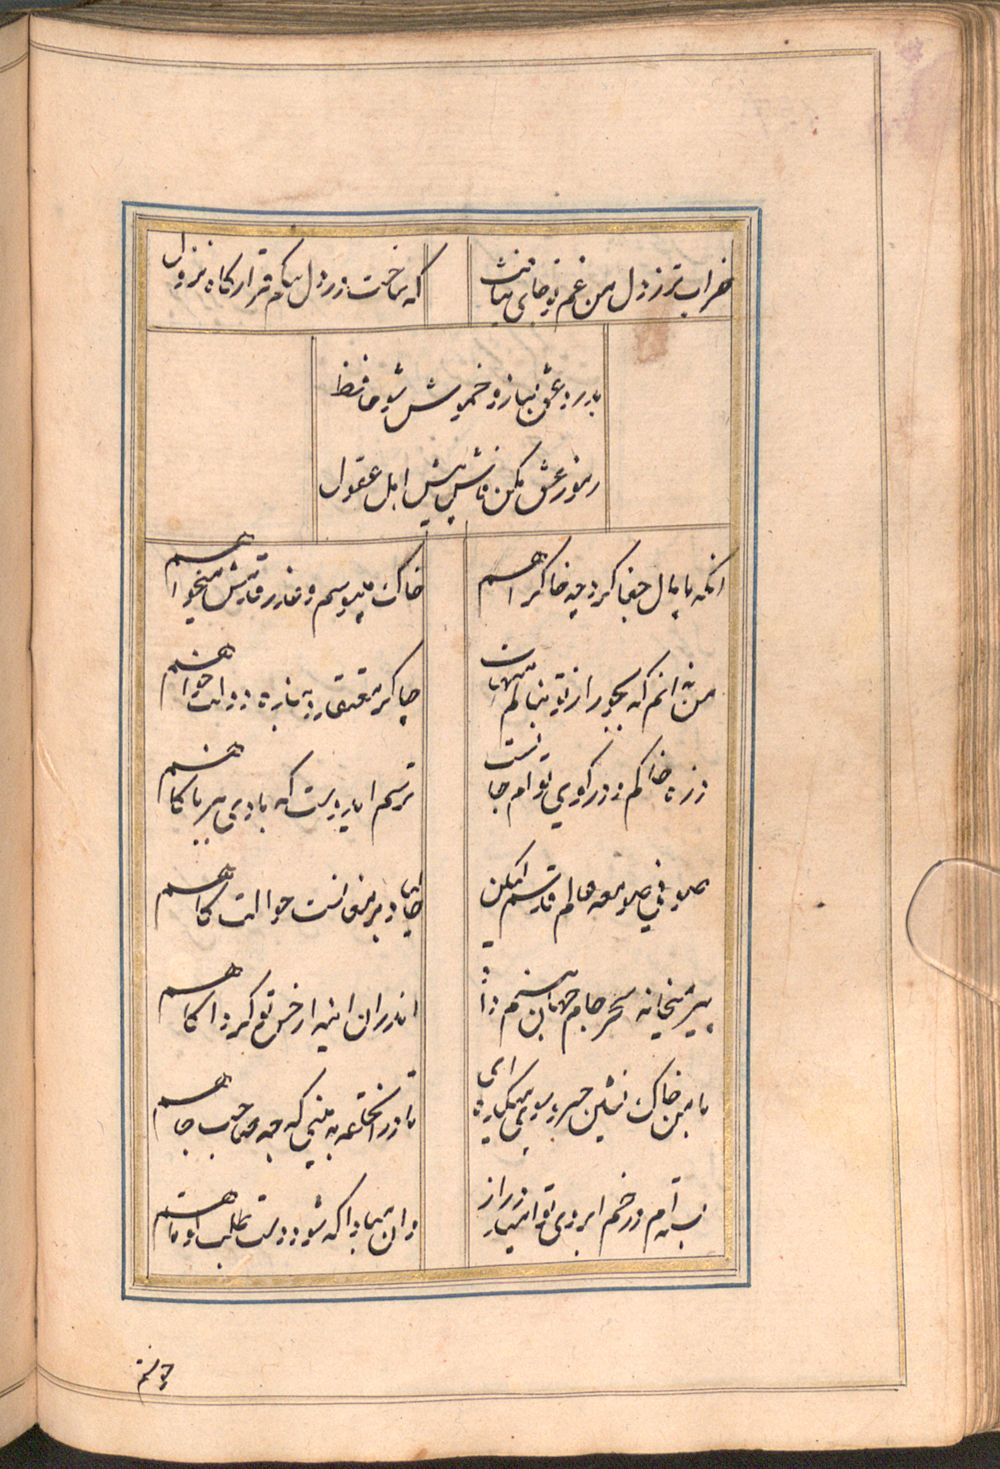 خراب تر ز دل من غم تو جای نیافت
که ساخت در دل تنگم قرارگاه نزول
بدرد عشق بساز و خموش شو حافظ
رموز عشق مکن فاش پیش اهل عقول
آنکه پامال جفا کرد چه خاک راهم
خاک میبوسم و عذر قدمش میخواهم
من نه آنم که بجور از تو بنالم هیهات
چاکر معتقد و بنده دولت خواهم
ذره خاکم و در کوی توام جا نست
ترسم ای دوست که بادی ببرد ناگاهم
صوفی صومعه عالم قدسم لیکن
حالیا دیر مغانست حوالت گاهم
پیر میخانه سحر جام جهان بینم داد
اندران آینه از حسن تو کرد آگاهم
با من خاک نشین خیز و سوی میکده ای
تا در آن حلقه ببینی که چه صاحب جاهم
بسته ام در خم ابروی تو امید دراز
وان مبادا که شود دست طلب کوتاهم